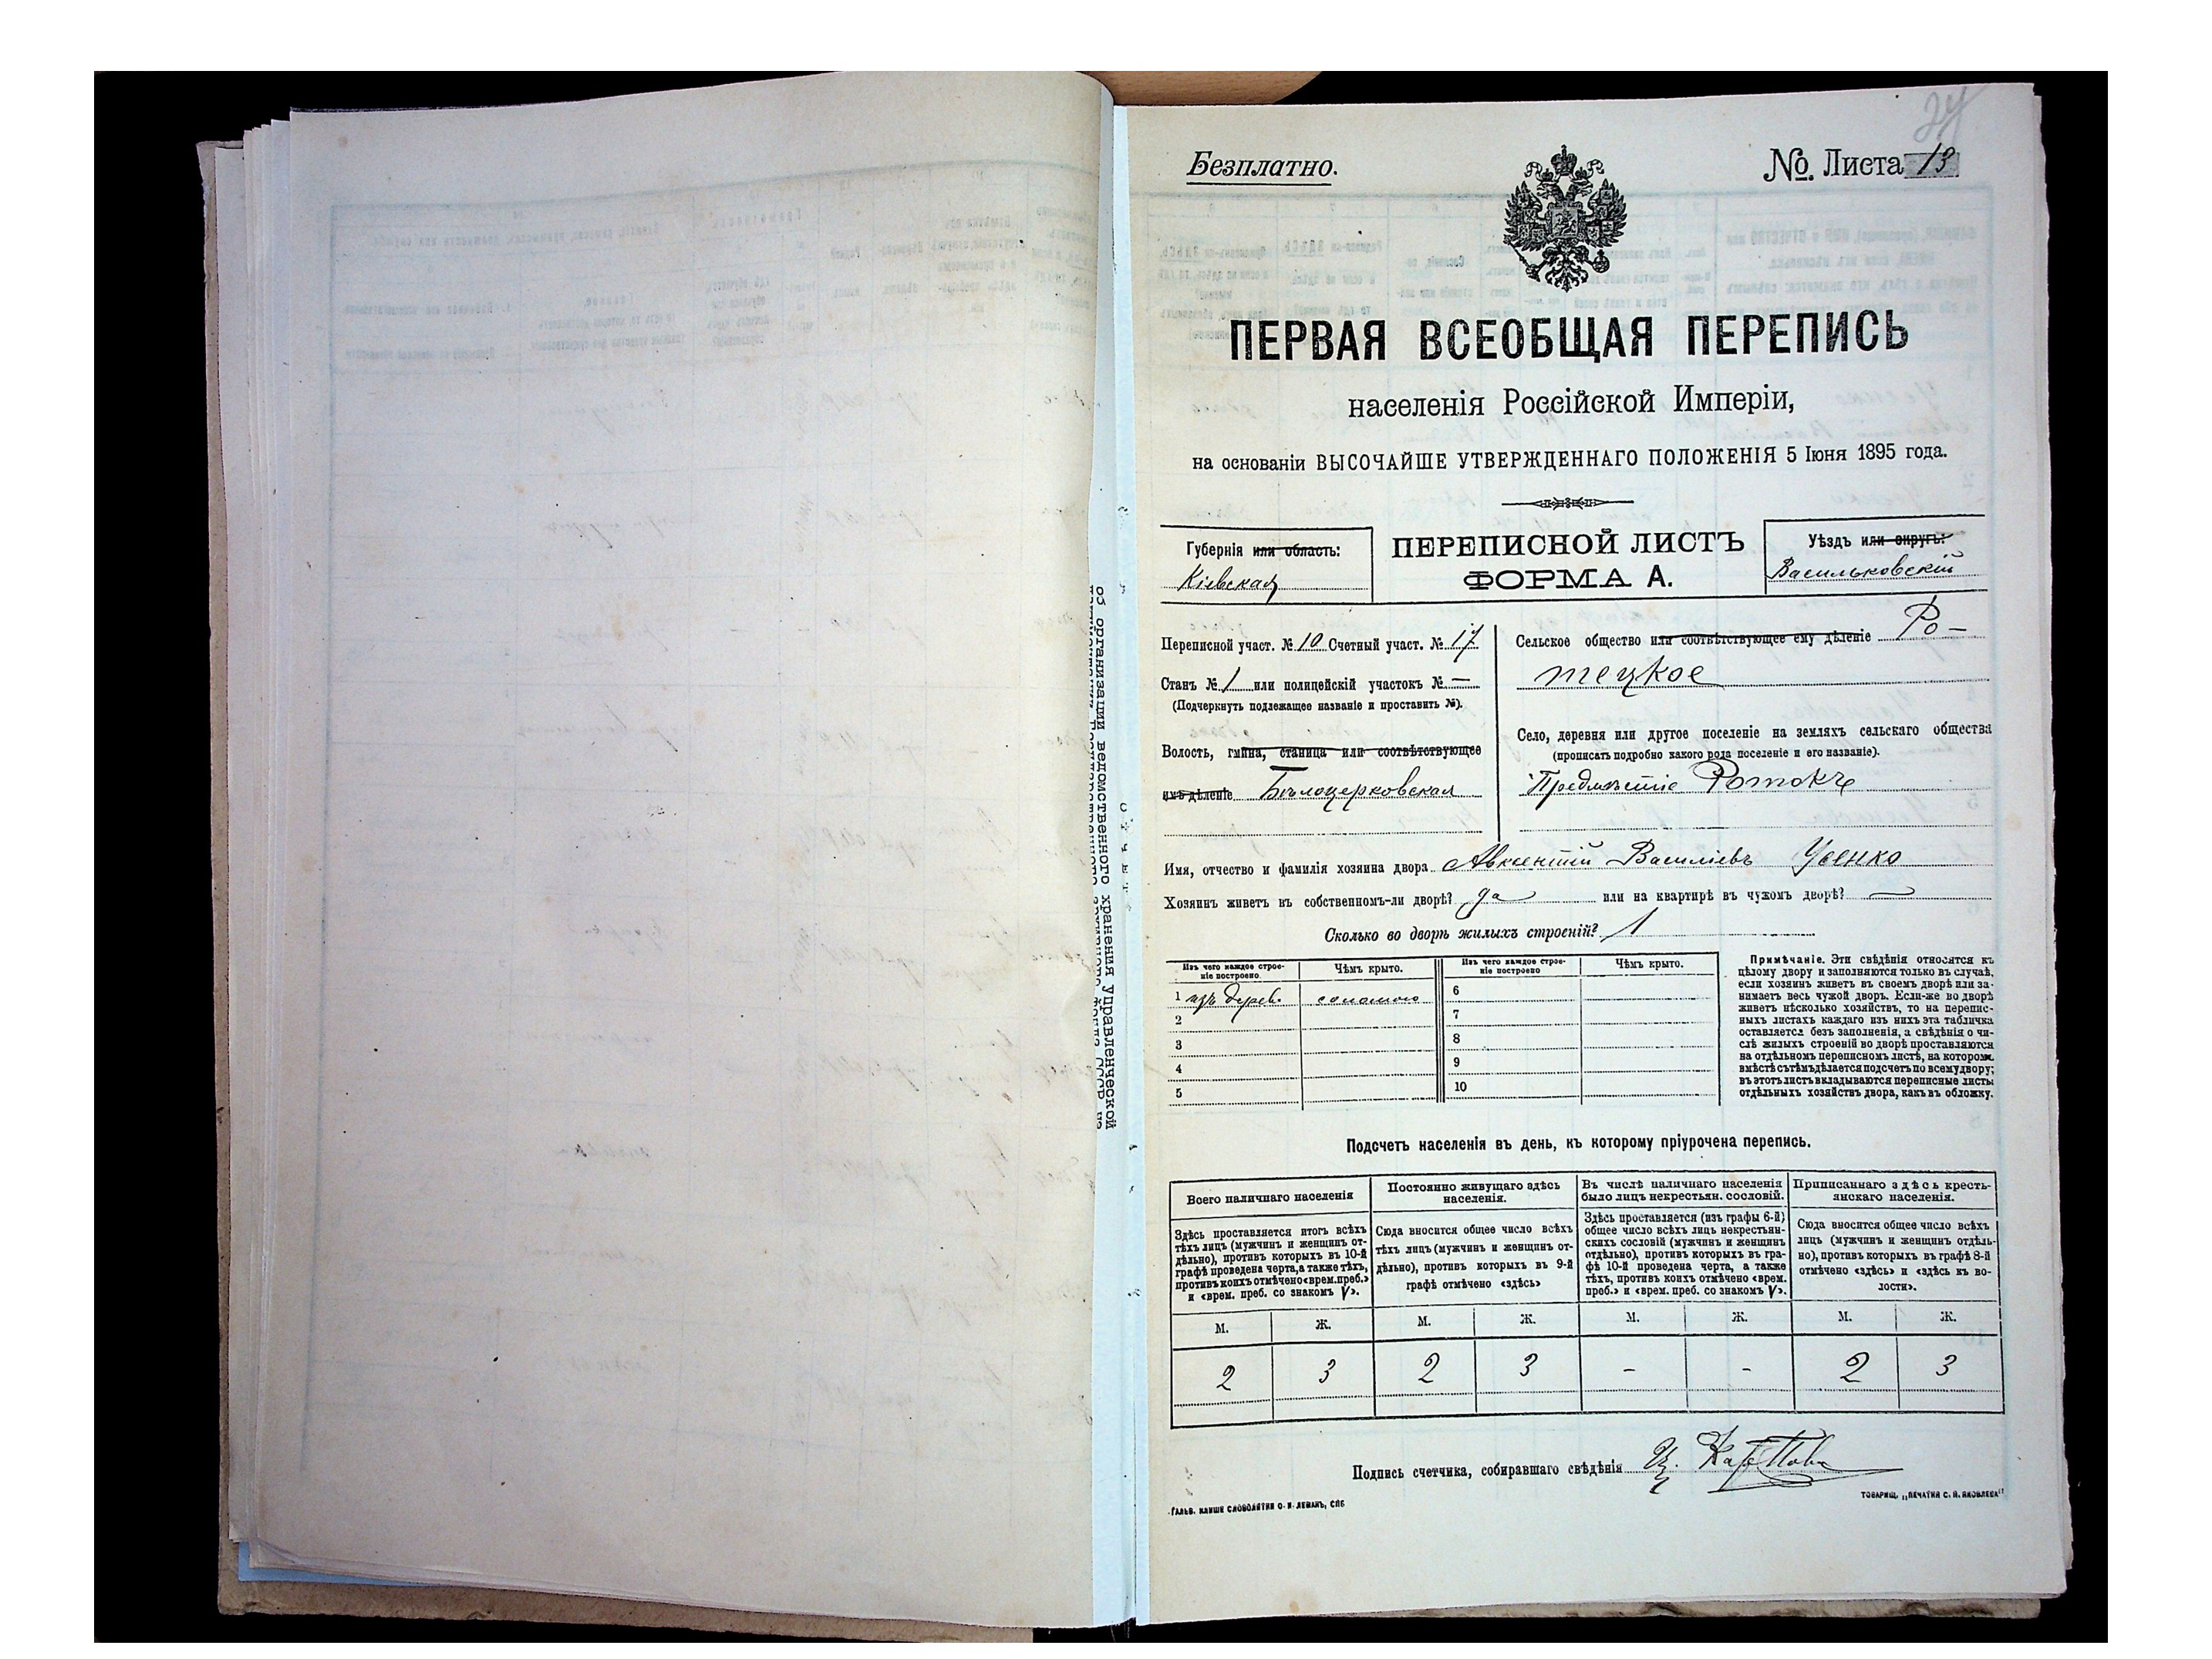 24
Безплатно.
№ Листа 13
ПЕРВАЯ ВСЕОБЩАЯ ПЕРЕПИСЬ
населенія Россійской Имперіи,
на основаніи ВЫСОЧАЙШЕ УТВЕРЖДЕННАГО ПОЛОЖЕНІЯ 5 Іюня 1895 года.
Губернія или область:
Кіевская
ПЕРЕПИСНОЙ ЛИСТЪ
ФОРМА А.
Уѣздъ или округъ:
Васильковскій
Переписной участ. № 10 Счетный участ. № 17
Станъ № 1 или полицейскій участокъ № —
(Подчеркнуть подлежащее названіе и проставить №).
Волость, гмина, станица или соотвѣтствующее
имъ дѣленіе Бѣлоцерковская
Сельское общество или соотвѣтствующее ему дѣленіе Ро-
тецкое
Село, деревня или другое поселеніе на земляхъ сельскаго общества
(прописать подробно какого рода поселеніе и его названіе).
Предмѣстіе Ротокъ
Имя, отчество и фамилія хозяина двора Авксентій Василіевъ Усенко
Хозяинъ живетъ въ собственномъ-ли дворѣ? да или на квартирѣ въ чужомъ дворѣ? —
Сколько во дворѣ жилыхъ строеній? 1
Изъ чего каждое строе-
ніе построено
Чѣмъ крыто.
Изъ чего каждое строе-
ніе построено
Чѣмъ крыто.
1 изъ дерев. соломою
2
3
4
5
6
7
8
9
10
Примѣчаніе. Эти свѣдѣнія относятся къ
цѣлому двору и заполняются только въ случаѣ,
если хозяинъ живетъ въ своемъ дворѣ или за-
нимаетъ весь чужой дворъ. Если-же во дворѣ
живетъ нѣсколько хозяйствъ, то на перепис-
ныхъ листахъ каждаго изъ нихъ эта табличка
оставляется безъ заполненія, а свѣдѣнія о чи-
слѣ жилыхъ строеній во дворѣ проставляются
на отдѣльномъ переписномъ листѣ, на которомъ
вмѣстѣ съ тѣмъ дѣлается подсчетъ по всему двору;
въ этотъ листъ вкладываются переписные листы
отдѣльныхъ хозяйствъ двора, какъ въ обложку.
Подсчетъ населенія въ день, къ которому пріурочена перепись.
Всего наличнаго населенія
Здѣсь проставляется итогъ всѣхъ
тѣхъ лицъ (мужчинъ и женщинъ от-
дѣльно), противъ которыхъ въ 10-й
графѣ проведена черта, а также тѣхъ,
противъ коихъ отмѣчено «врем. преб.»
и «врем. преб. со знакомъ V».
Постоянно живущаго здѣсь
населенія.
Сюда вносится общее число всѣхъ
тѣхъ лицъ (мужчинъ и женщинъ от-
дѣльно), противъ которыхъ въ 9-й
графѣ отмѣчено «здѣсь»
Въ числѣ наличнаго населенія
было лицъ некрестьян. сословій.
Здѣсь проставляется (изъ графы 6-й)
общее число всѣхъ лицъ некрестьян-
скихъ сословій (мужчинъ и женщинъ
отдѣльно), противъ которыхъ въ гра-
фѣ 10-й проведена черта, а также
тѣхъ, противъ коихъ отмѣчено «врем.
преб.» и «врем. преб. со знакомъ V».
Приписаннаго здѣсь кресть-
янскаго населенія.
Сюда вносится общее число всѣхъ
лицъ (мужчинъ и женщинъ отдѣль-
но), противъ которыхъ въ графѣ 8-й
отмѣчено «здѣсь» и «здѣсь къ во-
лости».
М. Ж. М. Ж. М. Ж. М. Ж.
2 3 2 3 - - 2 3
Подпись счетчика, собиравшаго свѣдѣнія
ГАЛЬВ. КЛИШЕ СЛОВОЛИТНИ О. И. ЛЕМАНЪ, СПБ
ТОВАРИЩ. „ПЕЧАТНЯ С. П. ЯКОВЛЕВА"
об организации ведомственного хранения управленческой